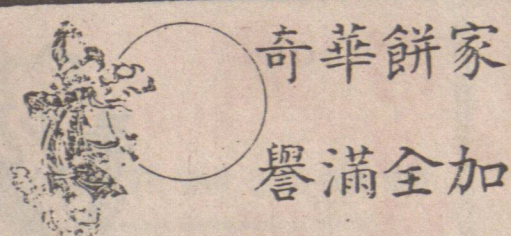 奇華餅家
譽滿全加